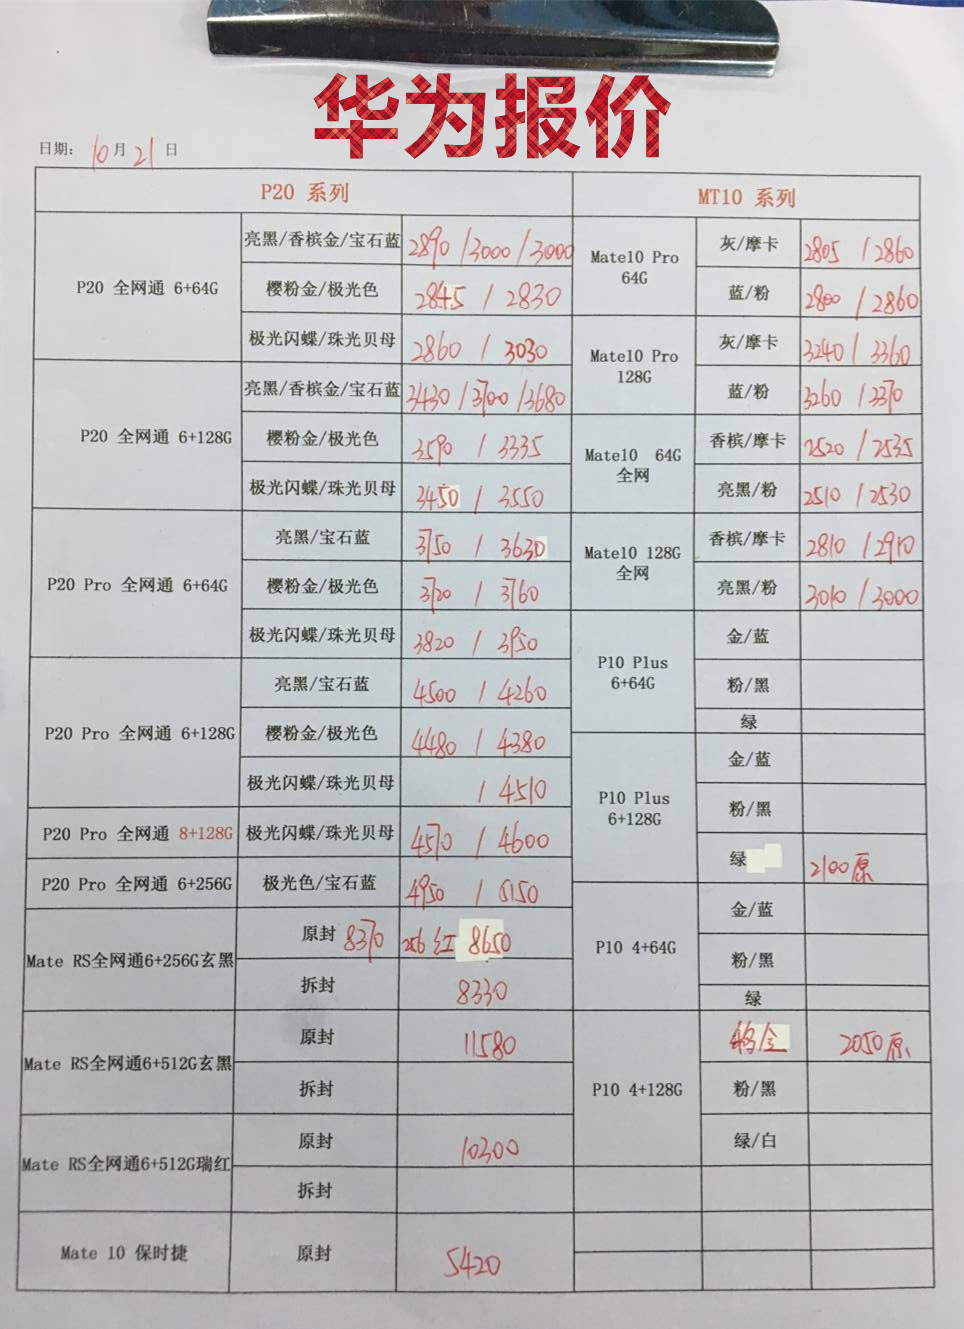 华为报价
日期: 10月21日
P20 系列
P20 全网通 6+64G
亮黑/香槟金/宝石蓝 2890 / 3000 / 3000
樱粉金/极光色 2845 / 2830
极光闪蝶/珠光贝母 2860 / 3030
P20 全网通 6+128G
亮黑/香槟金/宝石蓝 3430 / 3700 / 3680
樱粉金/极光色 3590 / 3335
极光闪蝶/珠光贝母 3450 / 3550
P20 Pro 全网通 6+64G
亮黑/宝石蓝 3750 / 3630
樱粉金/极光色 3720 / 3760
极光闪蝶/珠光贝母 3820 / 3950
P20 Pro 全网通 6+128G
亮黑/宝石蓝 4500 / 4260
樱粉金/极光色 4480 / 4380
极光闪蝶/珠光贝母 / 4510
P20 Pro 全网通 8+128G 极光闪蝶/珠光贝母 4570 / 4600
P20 Pro 全网通 6+256G 极光色/宝石蓝 4950 / 5150
Mate RS全网通6+256G玄黑
原封 8370 256 红 8650
拆封 8330
Mate RS全网通6+512G玄黑
原封 11580
拆封
Mate RS全网通6+512G瑞红
原封 10300
拆封
Mate 10 保时捷 原封 5420
MT10 系列
Mate10 Pro
64G
灰/摩卡 2805 / 2860
蓝/粉 2800 / 2860
Mate10 Pro
128G
灰/摩卡 3240 / 3360
蓝/粉 3260 / 3370
Mate10 64G
全网
香槟/摩卡 2520 / 2535
亮黑/粉 2510 / 2530
Mate10 128G
全网
香槟/摩卡 2810 / 2910
亮黑/粉 3010 / 3000
P10 Plus
6+64G
金/蓝
粉/黑
绿
P10 Plus
6+128G
金/蓝
粉/黑
绿 2100原
P10 4+64G
金/蓝
粉/黑
绿
P10 4+128G
金 2050原
粉/黑
绿/白